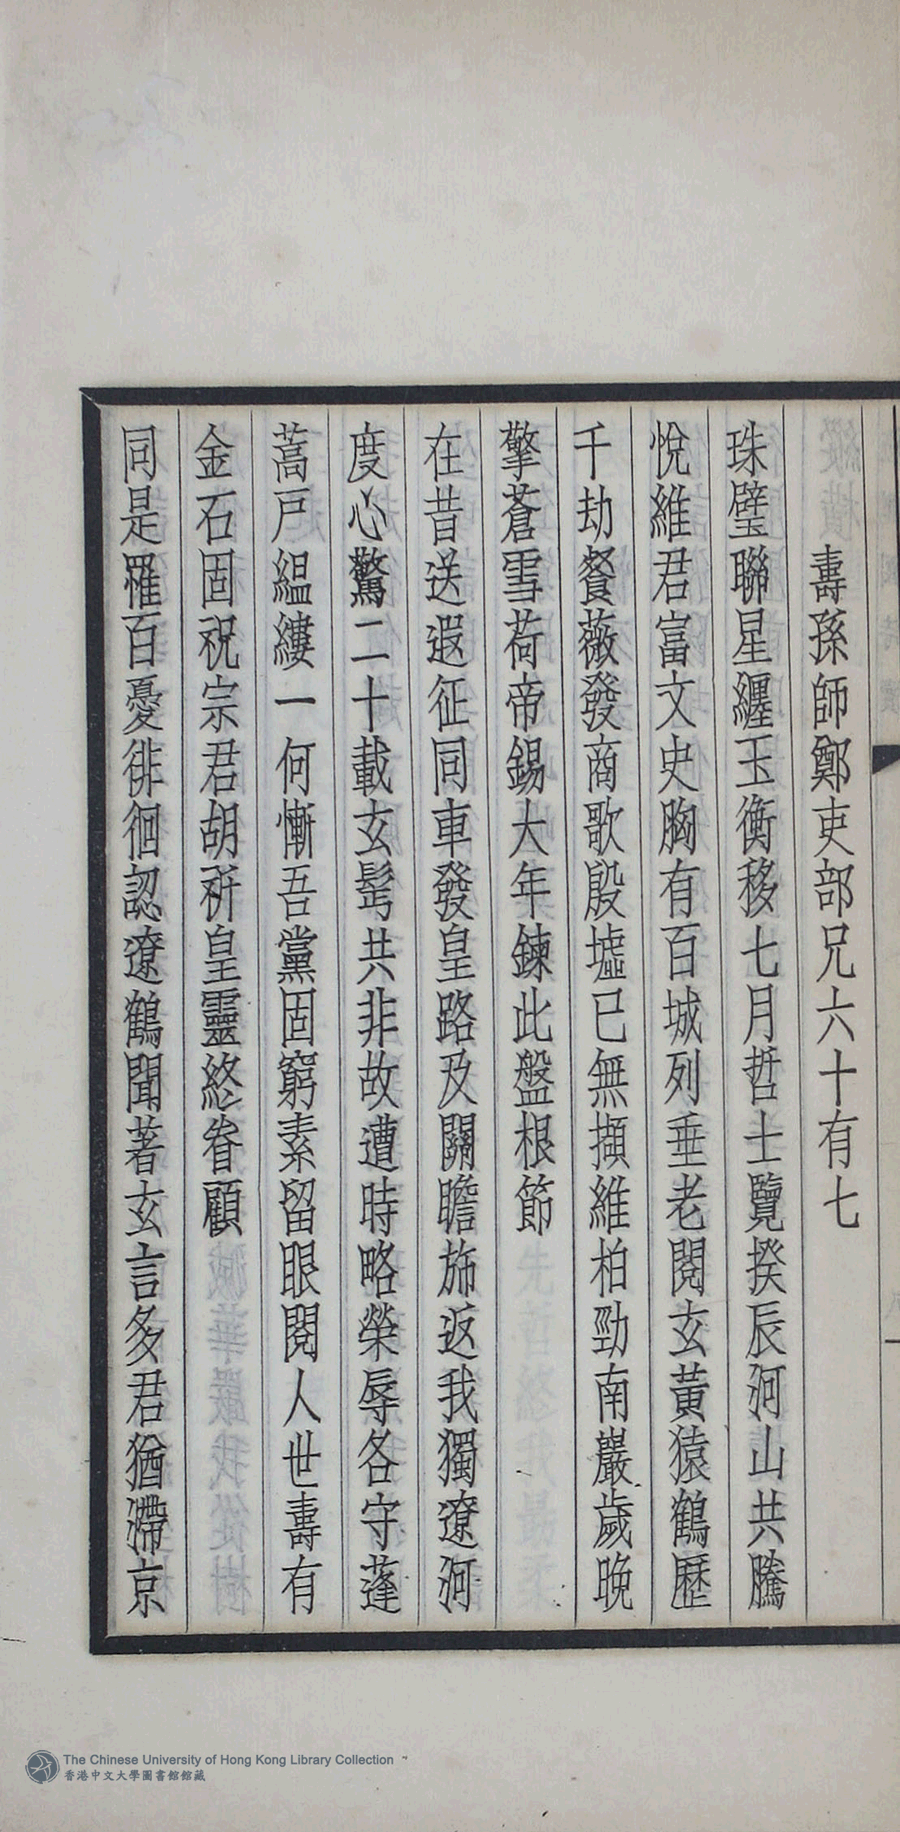 壽孫師鄭吏部兄六十有七
珠璧聯星纏玉衡移七月哲士覽揆辰河山共騰
悅維君富文史胸有百城列垂老閱玄黃猿鶴歷
千劫餐薇發商歌殷墟已無擷維柏勁南巖歲晚
擎蒼雪荷帝錫大年鍊此盤根節
在昔送遐征同車發皇路及關瞻斾返我獨遼河
度心驚二十載玄髩共非故遭時略榮辱各守蓬
蒿戶緼縷一何慚吾黨固窮素留眼閱人世壽有
金石固祝宗君胡祈皇靈終眷顧
同是罹百憂徘徊認遼鶴聞著玄言多君猶滯京
The Chinese University of Hong Kong Library Collection
香港中文大學圖書館館藏